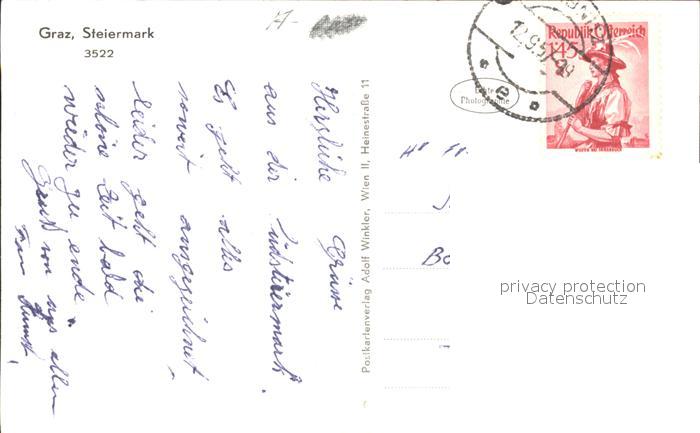 Graz, Steiermark
3522
7.-
Herzliche Grüsse
aus der Südsteiermark.
Es geht alles
soweit ausgezeichnet,
leider geht die
schöne Zeit bald
wieder zu ende.
Gruß von uns allen
Postkartenverlag Adolf Winkler, Wien II, Heinestraße 11
Echte
Photographie
12.9.57
Republik Österreich
1'45
privacy protection
Datenschutz